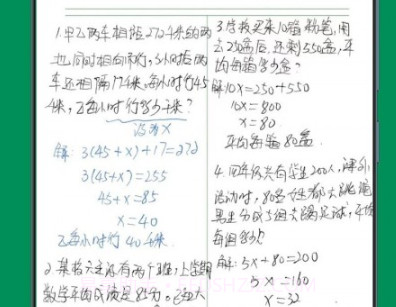 1.甲乙两车相距272千米的两
地,同时相向而行,3小时后两
车还相隔17千米,甲每小时行45
千米,乙每小时行多少千米?
设为X
解: 3(45+x)+17=272
3(45+x)=255
45+x=85
x=40
乙每小时行40千米.
2.某校六年级有两个班,上学期
数学平均成绩是85分。已知六
3.学校买来10箱粉笔,用
去250盒后,还剩550盒,平
均每箱多少盒?
解10x=250+550
10x=800
x=80
平均每箱80盒
4.四年级共有学生200人,课外
活动时,80名女生都去跳绳
男生分成5组去踢足球,平均
每组多少人
解:5x+80=200
5x=160
x=32